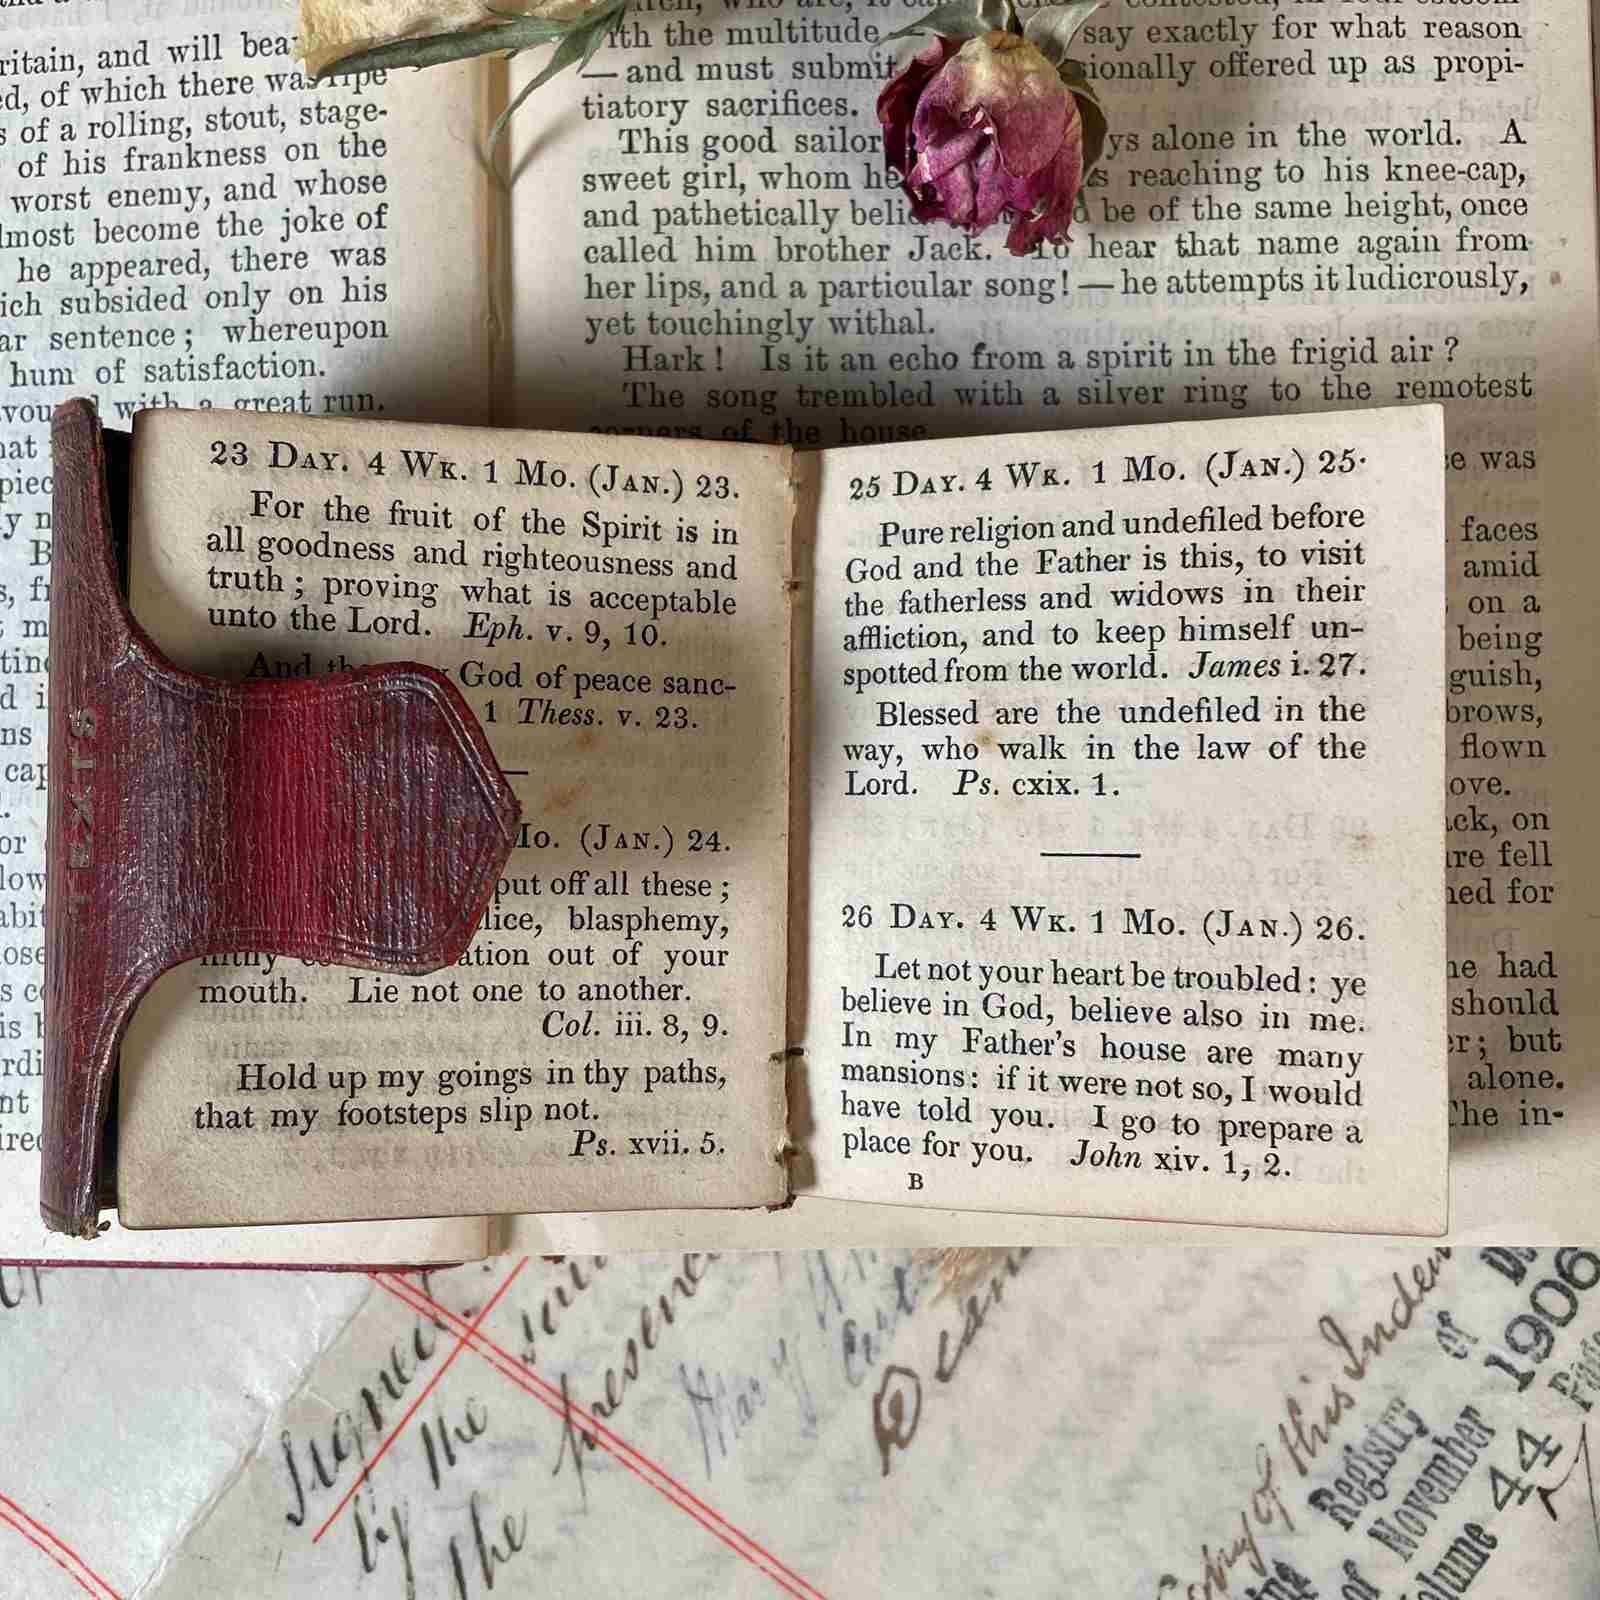 ritain, and will bea
ed, of which there was ripe
s of a rolling, stout, stage-
of his frankness on the
worst enemy, and whose
lmost become the joke of
he appeared, there was
ich subsided only on his
ar sentence; whereupon
hum of satisfaction.
with a great run.
ith the multitude —
say exactly for what reason
— and must submit
sionally offered up as propi-
tiatory sacrifices.
This good sailor
ys alone in the world. A
sweet girl, whom he
reaching to his knee-cap,
and pathetically belie
be of the same height, once
called him brother Jack. To hear that name again from
her lips, and a particular song! — he attempts it ludicrously,
yet touchingly withal.
Hark! Is it an echo from a spirit in the frigid air?
The song trembled with a silver ring to the remotest
corners of the house.
TEXTS
23 DAY. 4 WK. 1 MO. (JAN.) 23.
For the fruit of the Spirit is in
all goodness and righteousness and
truth; proving what is acceptable
unto the Lord. Eph. v. 9, 10.
And God of peace sanc-
1 Thess. v. 23.
MO. (JAN.) 24.
put off all these;
lice, blasphemy,
filthy ation out of your
mouth. Lie not one to another.
Col. iii. 8, 9.
Hold up my goings in thy paths,
that my footsteps slip not.
Ps. xvii. 5.
25 DAY. 4 WK. 1 MO. (JAN.) 25.
Pure religion and undefiled before
God and the Father is this, to visit
the fatherless and widows in their
affliction, and to keep himself un-
spotted from the world. James i. 27.
Blessed are the undefiled in the
way, who walk in the law of the
Lord. Ps. cxix. 1.
26 DAY. 4 WK. 1 MO. (JAN.) 26.
Let not your heart be troubled: ye
believe in God, believe also in me.
In my Father's house are many
mansions: if it were not so, I would
have told you. I go to prepare a
place for you. John xiv. 1, 2.
B
e was
faces
amid
on a
being
guish,
brows,
flown
ove.
ck, on
re fell
ned for
he had
should
er; but
alone.
The in-
Signed
by the
the presence
Mary
of this Inden
Registry of
of November 1906
Volume 44